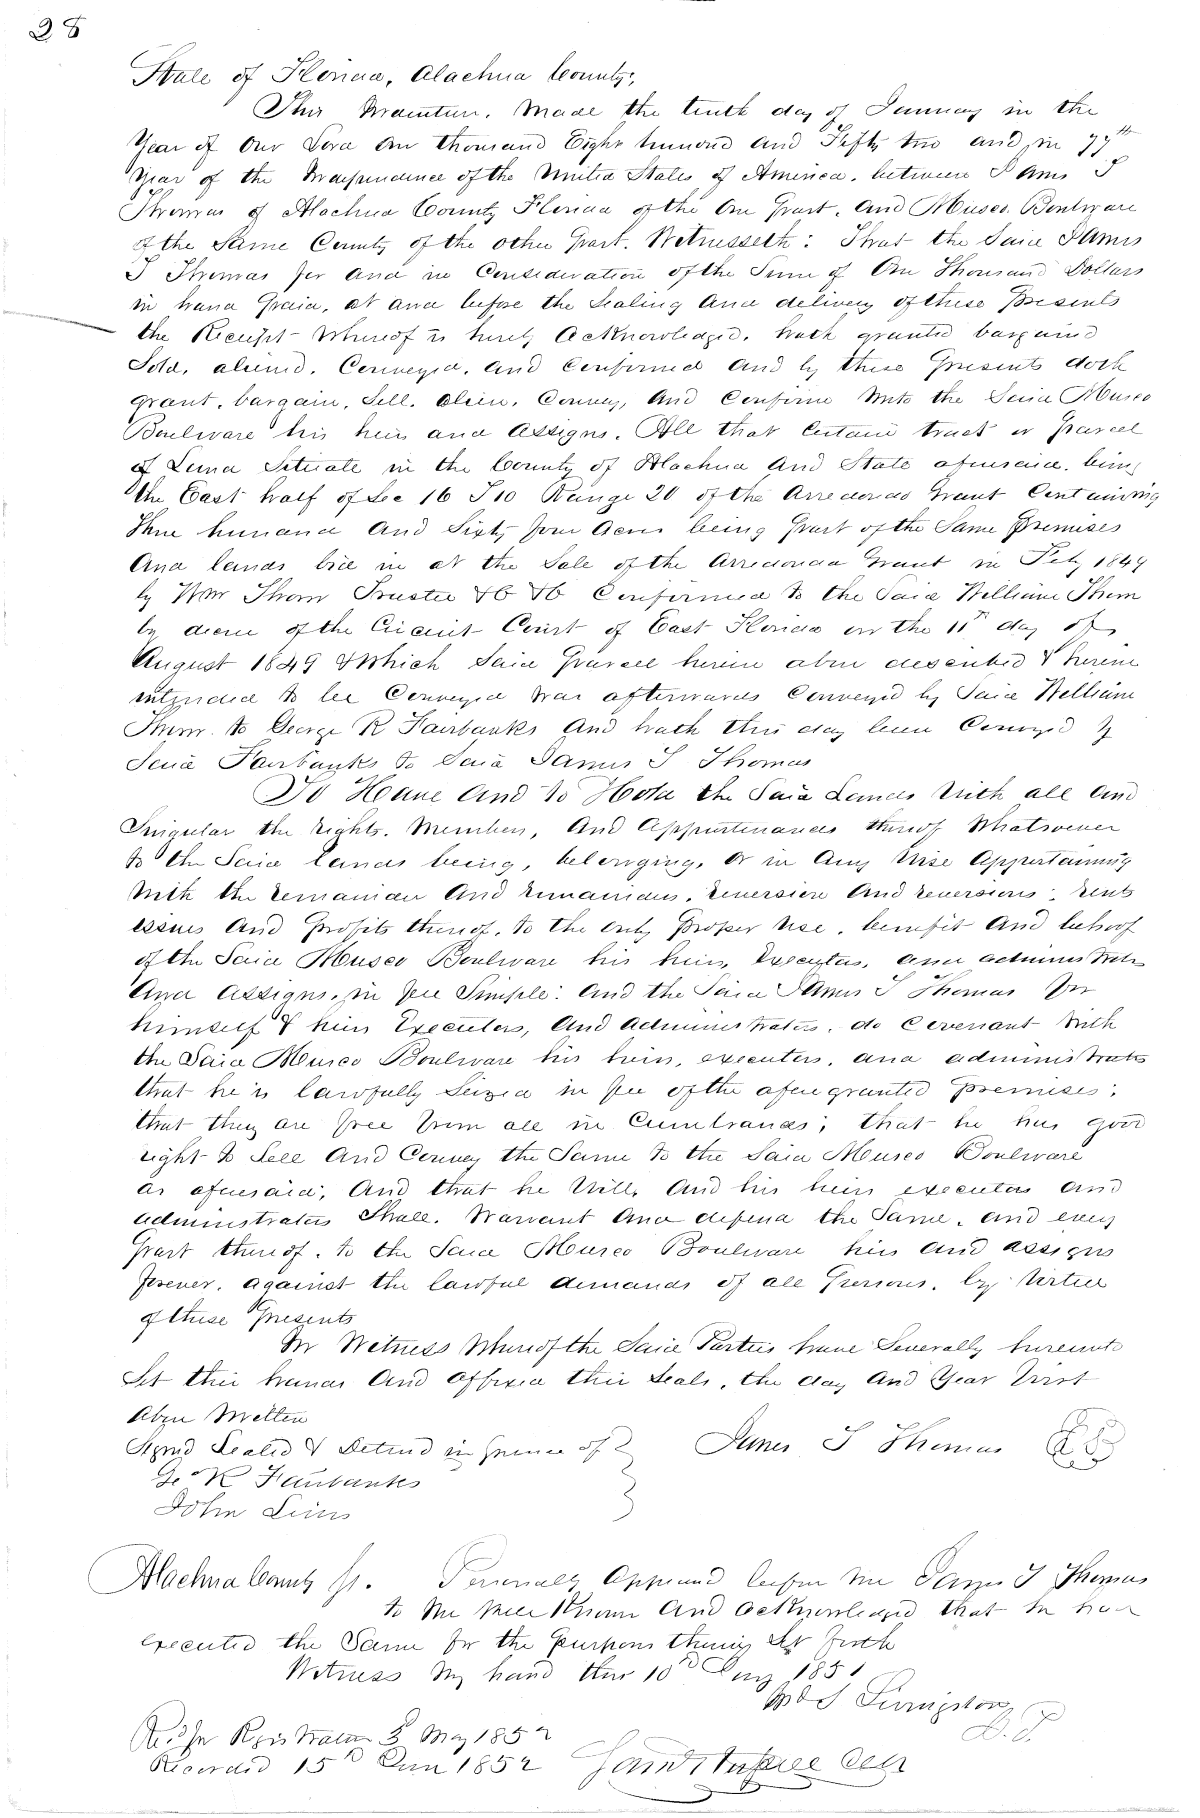 28
State of Florida, Alachua County;
This Indenture. Made the tenth day of January in the
Year of Our Lord One thousand Eight hundred and Fifty two and in 77th
Year of the Independence of the United States of America. between James T
Thomas of Alachua County Florida of the One Part. and Museo Boulware
of the Same County of the other Part. Witnesseth: That the Said James
T Thomas for and in Consideration of the Sum of One Thousand Dollars
in hand Paid, at and before the Sealing And delivery of these Presents
the Receipt Whereof is hereby Acknowledged. hath granted bargained
Sold, aliened. Conveyed. and Confirmed and by these Presents doth
grant. bargain. Sell. Alien. Convey, And Confirm Unto the Said Museo
Boulware his heirs and Assigns. All that Certain tract or Parcel
of Land Situate in the County of Alachua And State aforesaid. being
the East half of Sec 16 T10 Range 20 of the Arredondo Grant Containing
Three hundred And Sixty four Acres being Part of the Same Premises
And lands bid in at the Sale of the Arredondo Grant in Feby 1849
by Wm Thom Trustee &c &c Confirmed to the Said William Thom
by decree of the Circuit Court of East Florida on the 11th day of
August 1849 & Which Said Parcel herein above described & herein
intended to be Conveyed was afterwards Conveyed by Said William
Thom. to George R Fairbanks And hath this day been Conveyed by
Said Fairbanks to Said James T Thomas
To Have And to Hold the Said Lands With all And
Singular the rights. Members, And Appurtenances thereof Whatsoever
to the Said lands being, belonging, Or in Any Wise Appertaining
With the remainder And remainders, reversion And reversions; rents
issues And Profits thereof. to the only Proper Use, benefit And behoof
of the Said Museo Boulware his heirs, Executors, and administrators
And Assigns. in fee Simple: And the Said James T Thomas for
himself & heirs Executors, And Administrators. do Covenant With
the Said Museo Boulware his heirs, executors, and administrators
that he is lawfully Seized in fee of the afore granted Premises;
that they are free from all in Cumbrances; that he has good
right to Sell And Convey the Same to the Said Museo Boulware
as aforesaid; And that he Will, And his heirs executors and
administrators Shall. Warrant And defend the Same. and every
Part thereof. to the Said Museo Boulware heirs and assigns
forever. against the lawful demands of all Persons. by Virtue
of these Presents
In Witness Whereof the Said Parties have Severally hereunto
Set their hands And Affixed their Seals. the day And Year first
Above Written
Signed Sealed & Deliverd in Presence of James T Thomas
Geo R Fairbanks
John
Alachua County Ss. Personally Appeared before me James T Thomas
to Me Well Known And Acknowledged that he had
executed the Same for the Purposes therein Set forth
Witness My hand this 10th Jany 1851
Livingston
Recd for Registration 3 May 1852
Recorded 15th Jun 1852